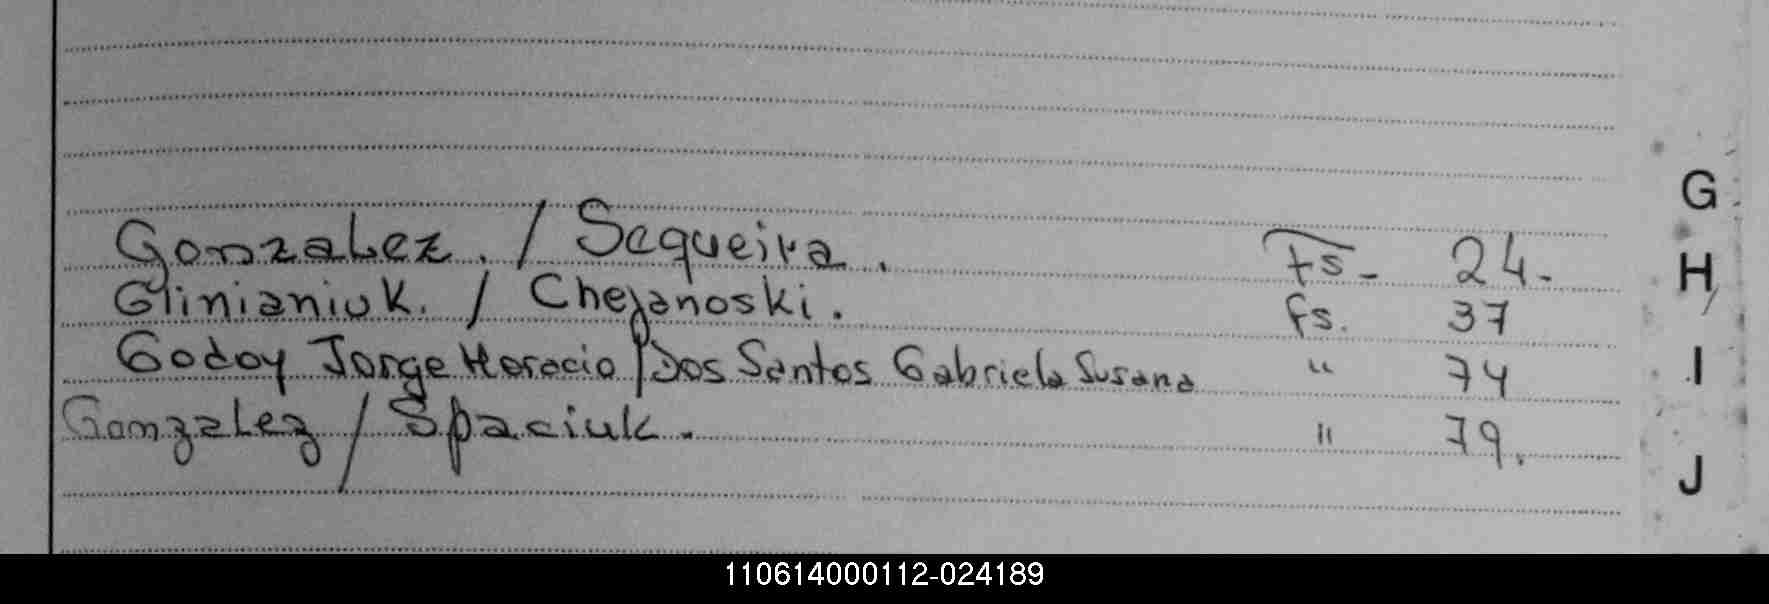 Gonzalez. / Sequeira. Fs- 24.
Glinianiuk. / Chejanoski. Fs. 37
Godoy Jorge Horacio / Dos Santos Gabriela Susana " 74
Gonzalez / Spaciuk. " 79.
G
H
I
J
110614000112-024189